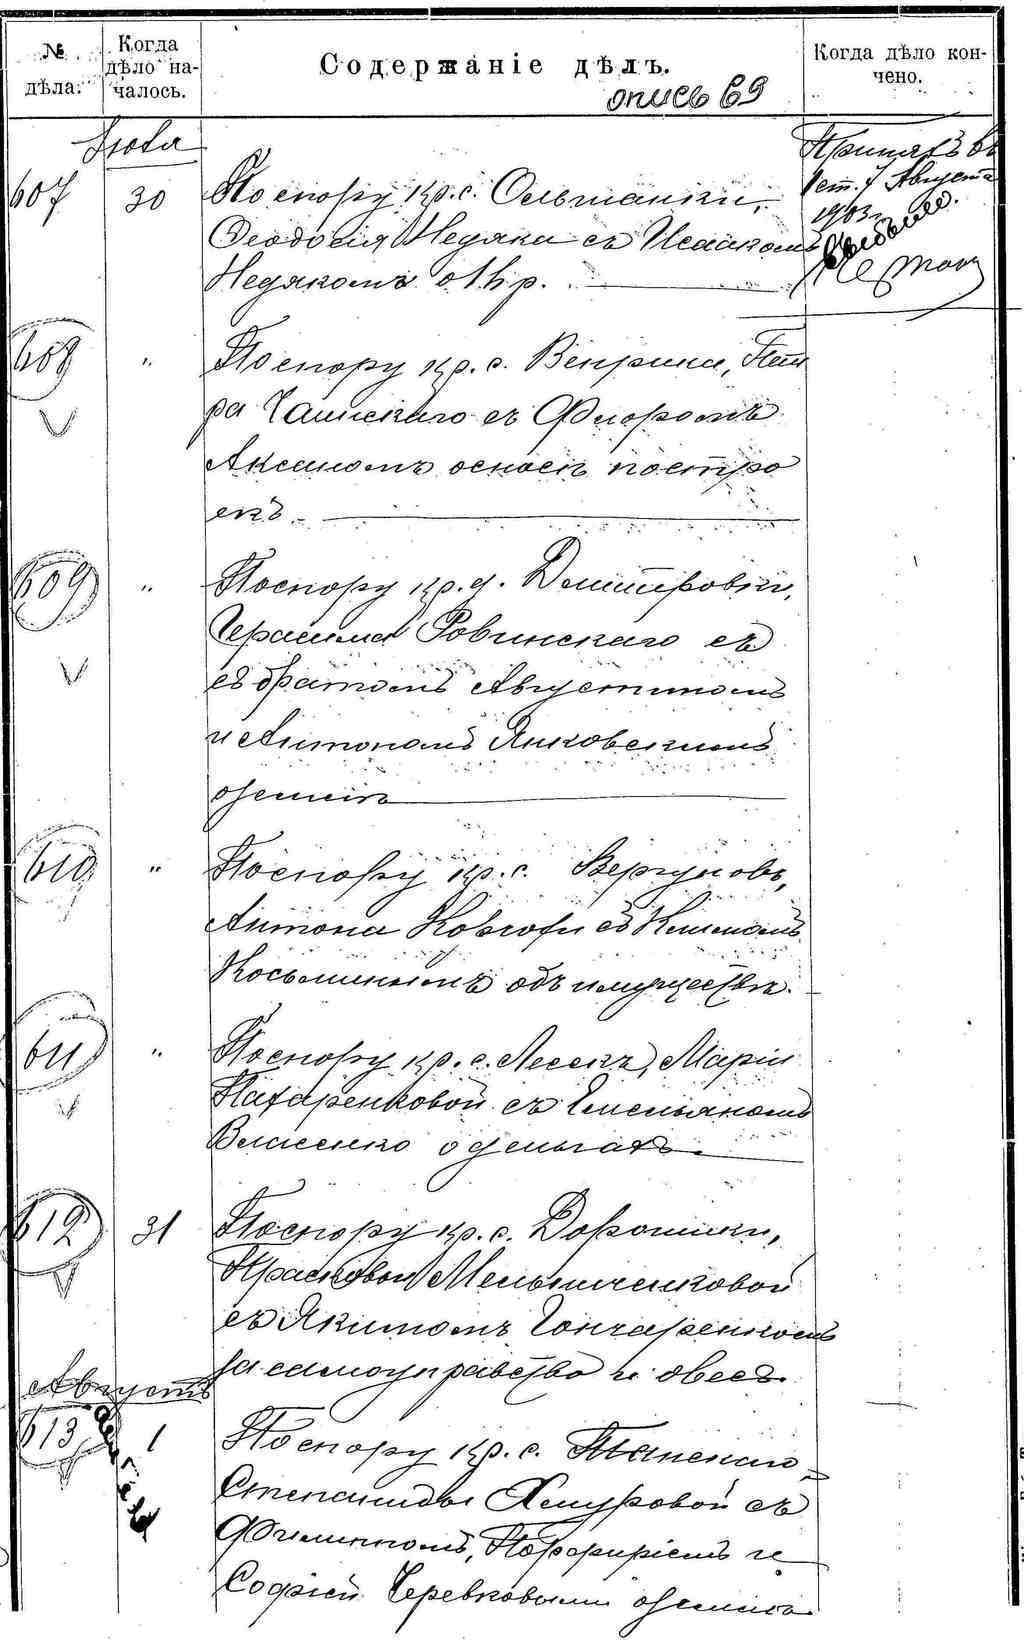 № дѣла.
Когда дѣло началось.
Содержаніе дѣлъ.
Когда дѣло кончено.
опись 69
Июля
607
30
По спору кр. с. Ольшанки,
Феодосия Недяки съ Исаакомъ
Недякомъ о 1 1/2 р.
1903 г.
Августа
608
"
По спору кр. с. Венрики, Пет
ра Чашскаго съ Флоромъ
Аксаномъ о сносѣ постро
екъ
609
"
По спору кр. д. Дмитровки,
Герасима Ровинскаго съ
съ братомъ Августиномъ
и Антономъ Янковскимъ
о землѣ
610
"
По спору кр. с. Вергуновъ,
Антона съ Климомъ
Косьминымъ объ имуществѣ.
611
"
По спору кр. с. Лесекъ, Маріи
Назаренковой съ Емельяномъ
Власенко о деньгахъ.
612
31
По спору кр. с. Дорошики,
Прасковьи Мельниченковой
съ Якимомъ Гончаренкомъ
за самоуправство и овесъ
Августъ
613
1
По спору кр. с. Танскаго
Степаниды Хмуровой съ
Филиппомъ, Порфиріемъ и
Софіей Черевковыми о землѣ